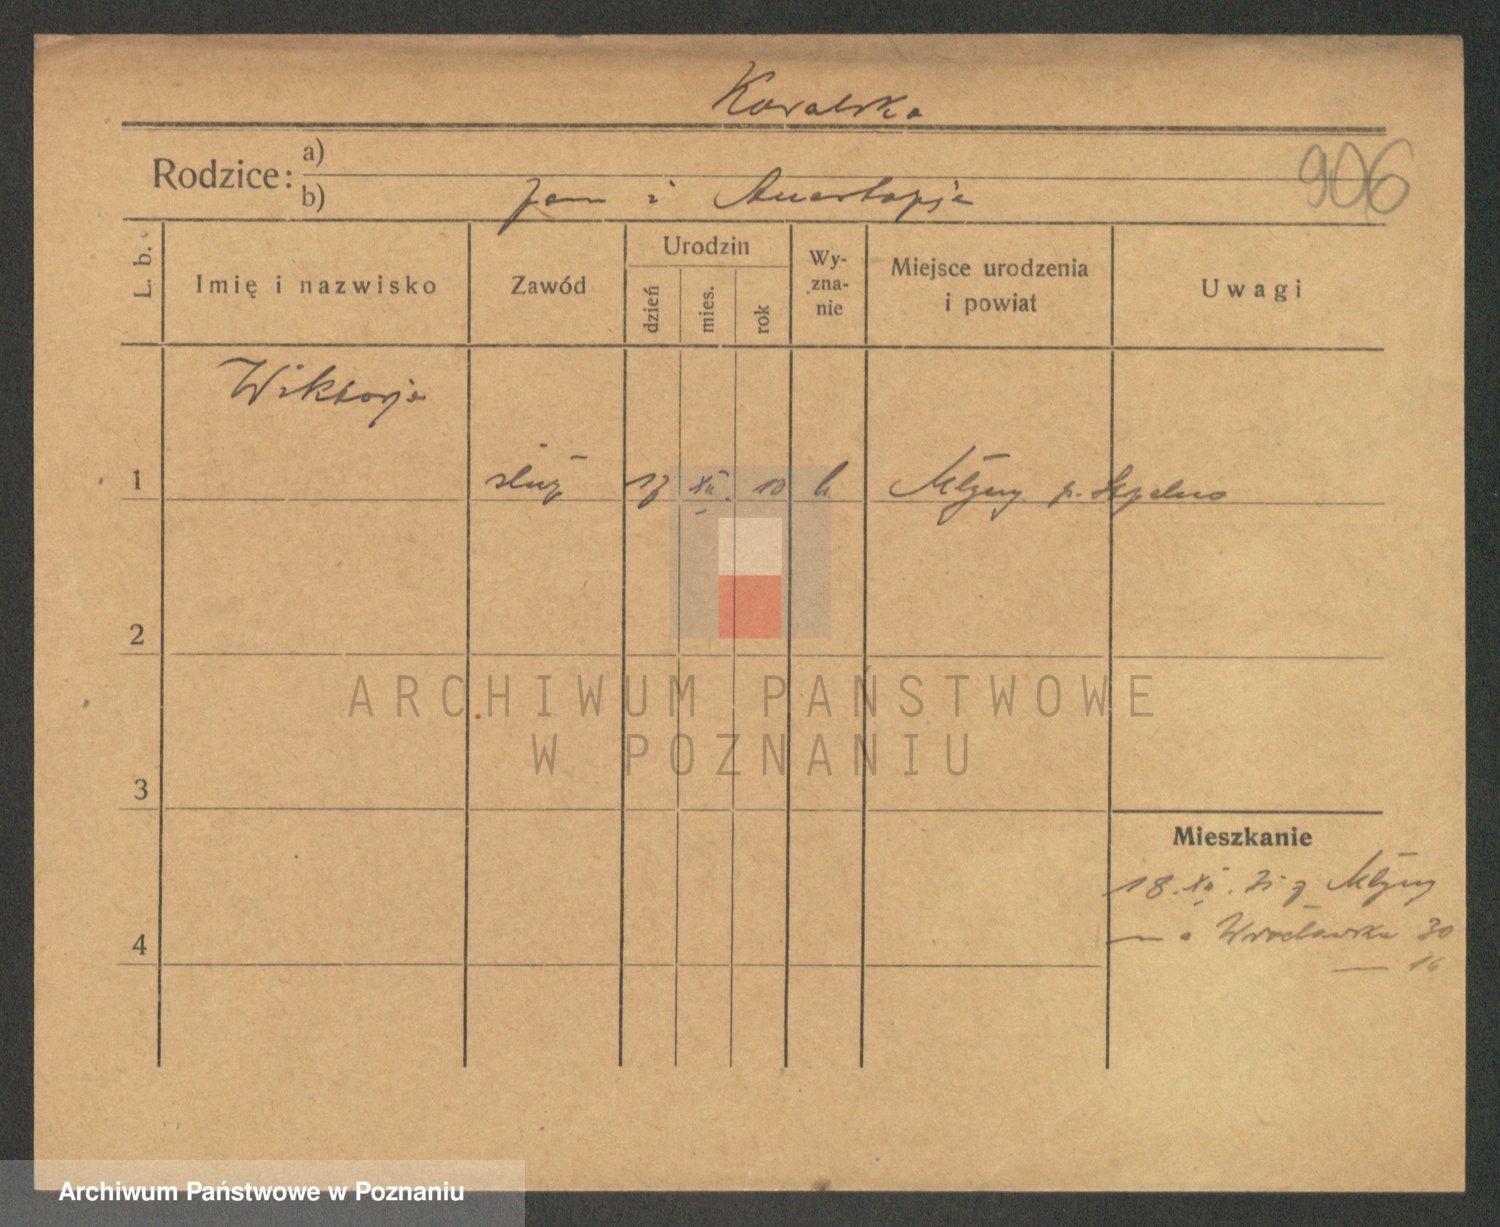 Kowalska
906
Rodzice: a)
b) Jan i Anastazja
L. b.
Imię i nazwisko
Zawód
Urodzin
dzień
mies.
rok
Wy-
zna-
nie
Miejsce urodzenia
i powiat
Uwagi
Wiktorja
1 służ 17 XII. 10 k. Młyny p. Szpelno
2
3
4
Mieszkanie
18. XII. 31 z Młyny
Wrocławska 30
— 16
ARCHIWUM PAŃSTWOWE
W POZNANIU
Archiwum Państwowe w Poznaniu